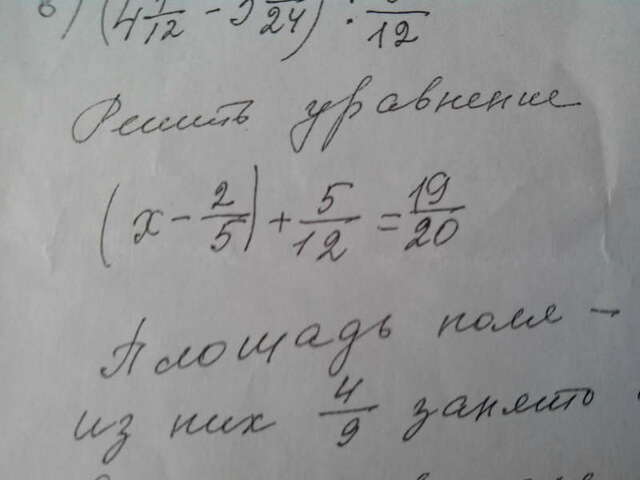 в) (4 1/12 - 3 /24) : /12
Решить уравнение
(x - 2/5) + 5/12 = 19/20
Площадь поля -
из них 4/9 занято